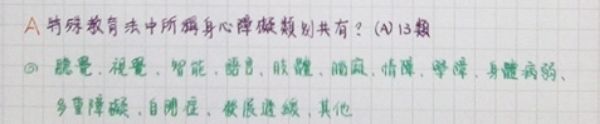 A 特殊教育法中所稱身心障礙類別共有？(A) 13類
◎ 聽覺、視覺、智能、語言、肢體、腦麻、情障、學障、身體病弱、
多重障礙、自閉症、發展遲緩、其他